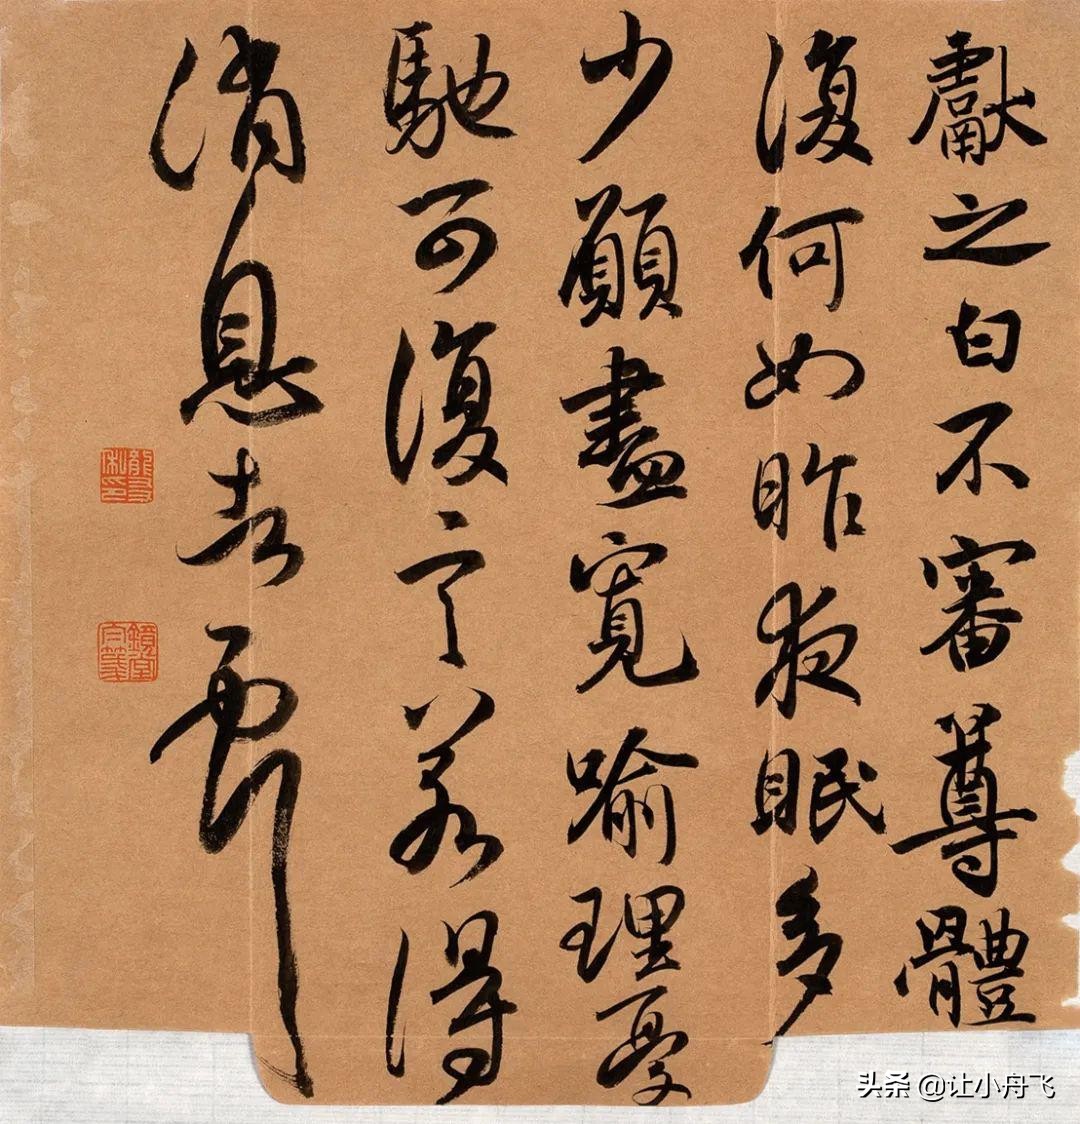 獻之白不審尊體
復何如昨夜眠多
少願盡寬喻理憂
馳可復言若得
消息者
头条 @让小舟飞